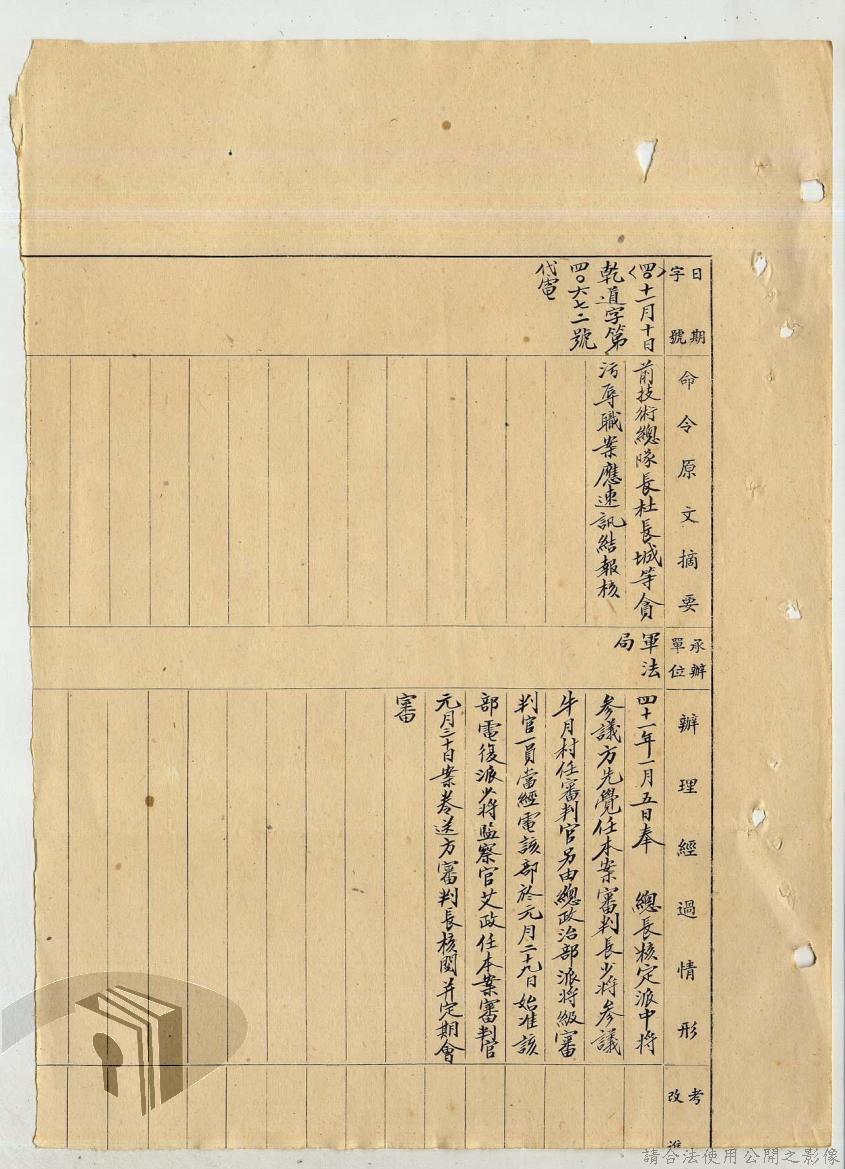 日期
字號
命令原文摘要
承辦
單位
辦理經過情形
考
改進
〈四〇〉十一月十日
乾道字第
四〇六七二號
代電
前技術總隊長杜長城等貪
污辱職案應速訊結報核
軍法
局
四十一年一月五日奉　總長核定派中將
參議方先覺任本案審判長少將參議
牛月村任審判官另由總政治部派將級審
判官一員當經電該部於元月二十九日始准該
部電復派少將監察官艾政任本案審判官
元月三十日案卷送方審判長核閱并定期會
審
請合法使用公開之影像